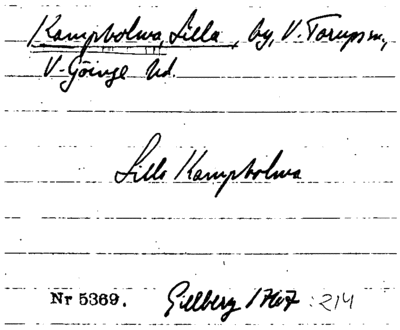 Kampholma, Lilla, by, V. Torups sn,
V. Göinge hd.
Lilla Kampholma
Nr 5369. Gillberg 1767 : 214